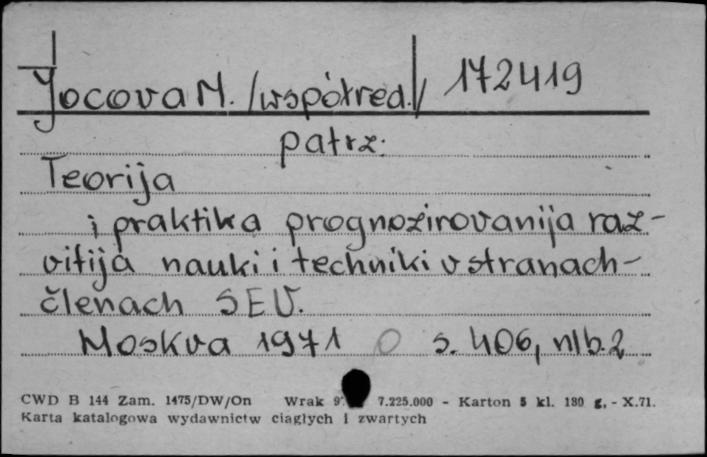 Jocova M. /współred./ 172419
patrz:
Teorija
i praktika prognozirovanija raz-
vitija nauki i techniki v stranach-
členach SEV.
Moskva 1971 s. 406, nlb. 2
CWD B 144 Zam. 1475/DW/On Wrak 7.225.000 - Karton 5 kl. 180 g. - X.71.
Karta katalogowa wydawnictw ciągłych i zwartych